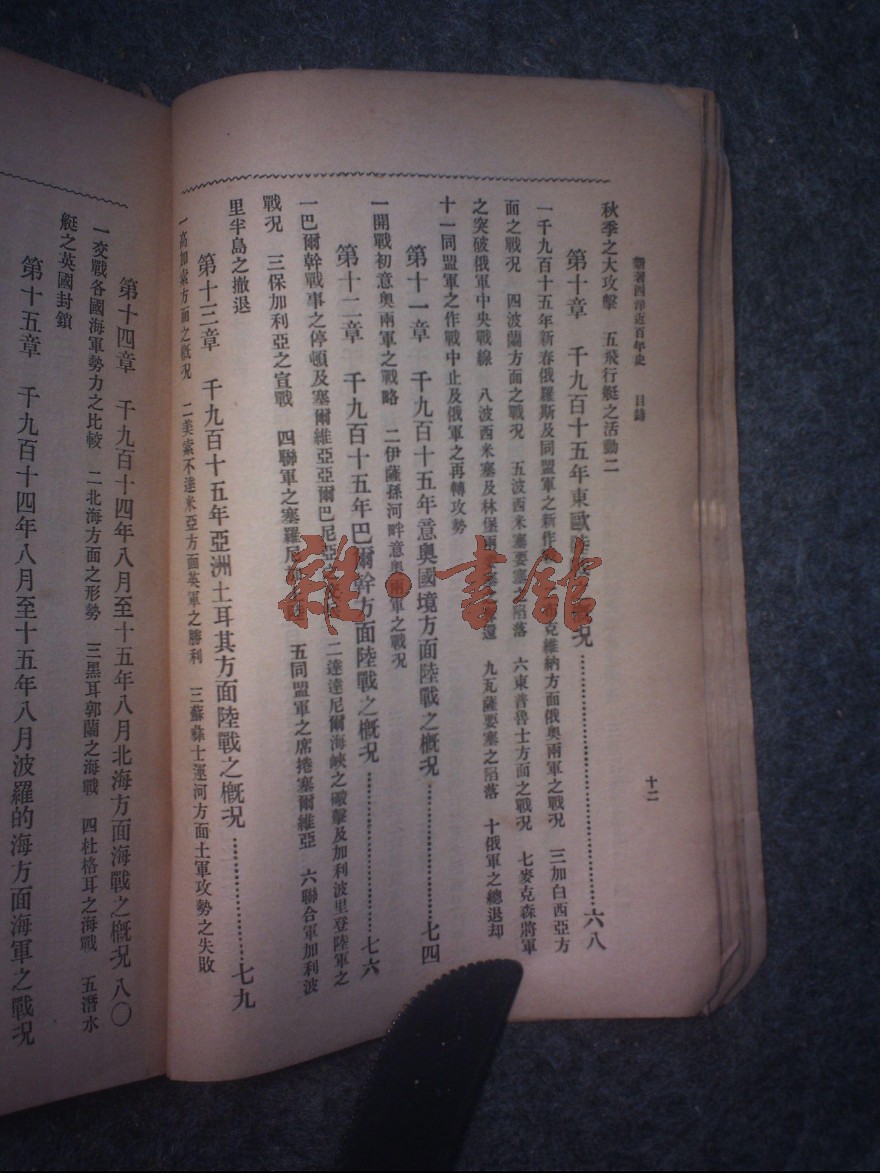 新著西洋近百年史 目錄
十二
秋季之大攻擊 五飛行艇之活動二
第十章 千九百十五年東歐 槪況 六八
一千九百十五年新春俄羅斯及同盟軍之新作 克維納方面俄奧兩軍之戰況 三加白西亞方
面之戰況 四波蘭方面之戰況 五波西米塞要塞之陷落 六東普魯士方面之戰況 七麥克森將軍
之突破俄軍中央戰線 八波西米塞及林堡 還 九瓦薩要塞之陷落 十俄軍之總退却
十一同盟軍之作戰中止及俄軍之再轉攻勢
第十一章 千九百十五年意奧國境方面陸戰之槪況 七四
一開戰初意奧兩軍之戰略 二伊薩孫河畔意奧兩軍之戰況
第十二章 千九百十五年巴爾幹方面陸戰之槪況 七六
一巴爾幹戰事之停頓及塞爾維亞亞爾巴尼亞 二達達尼爾海峽之礮擊及加利波里登陸軍之
戰況 三保加利亞之宣戰 四聯軍之塞羅尼 五同盟軍之席捲塞爾維亞 六聯合軍加利波
里半島之撤退
第十三章 千九百十五年亞洲土耳其方面陸戰之槪況 七九
一高加索方面之槪況 二美索不達米亞方面英軍之勝利 三蘇彝士運河方面土軍攻勢之失敗
第十四章 千九百十四年八月至十五年八月北海方面海戰之槪況 八〇
一交戰各國海軍勢力之比較 二北海方面之形勢 三黑耳郭蘭之海戰 四杜格耳之海戰 五潛水
艇之英國封鎖
第十五章 千九百十四年八月至十五年八月波羅的海方面海軍之戰況
雜·書館